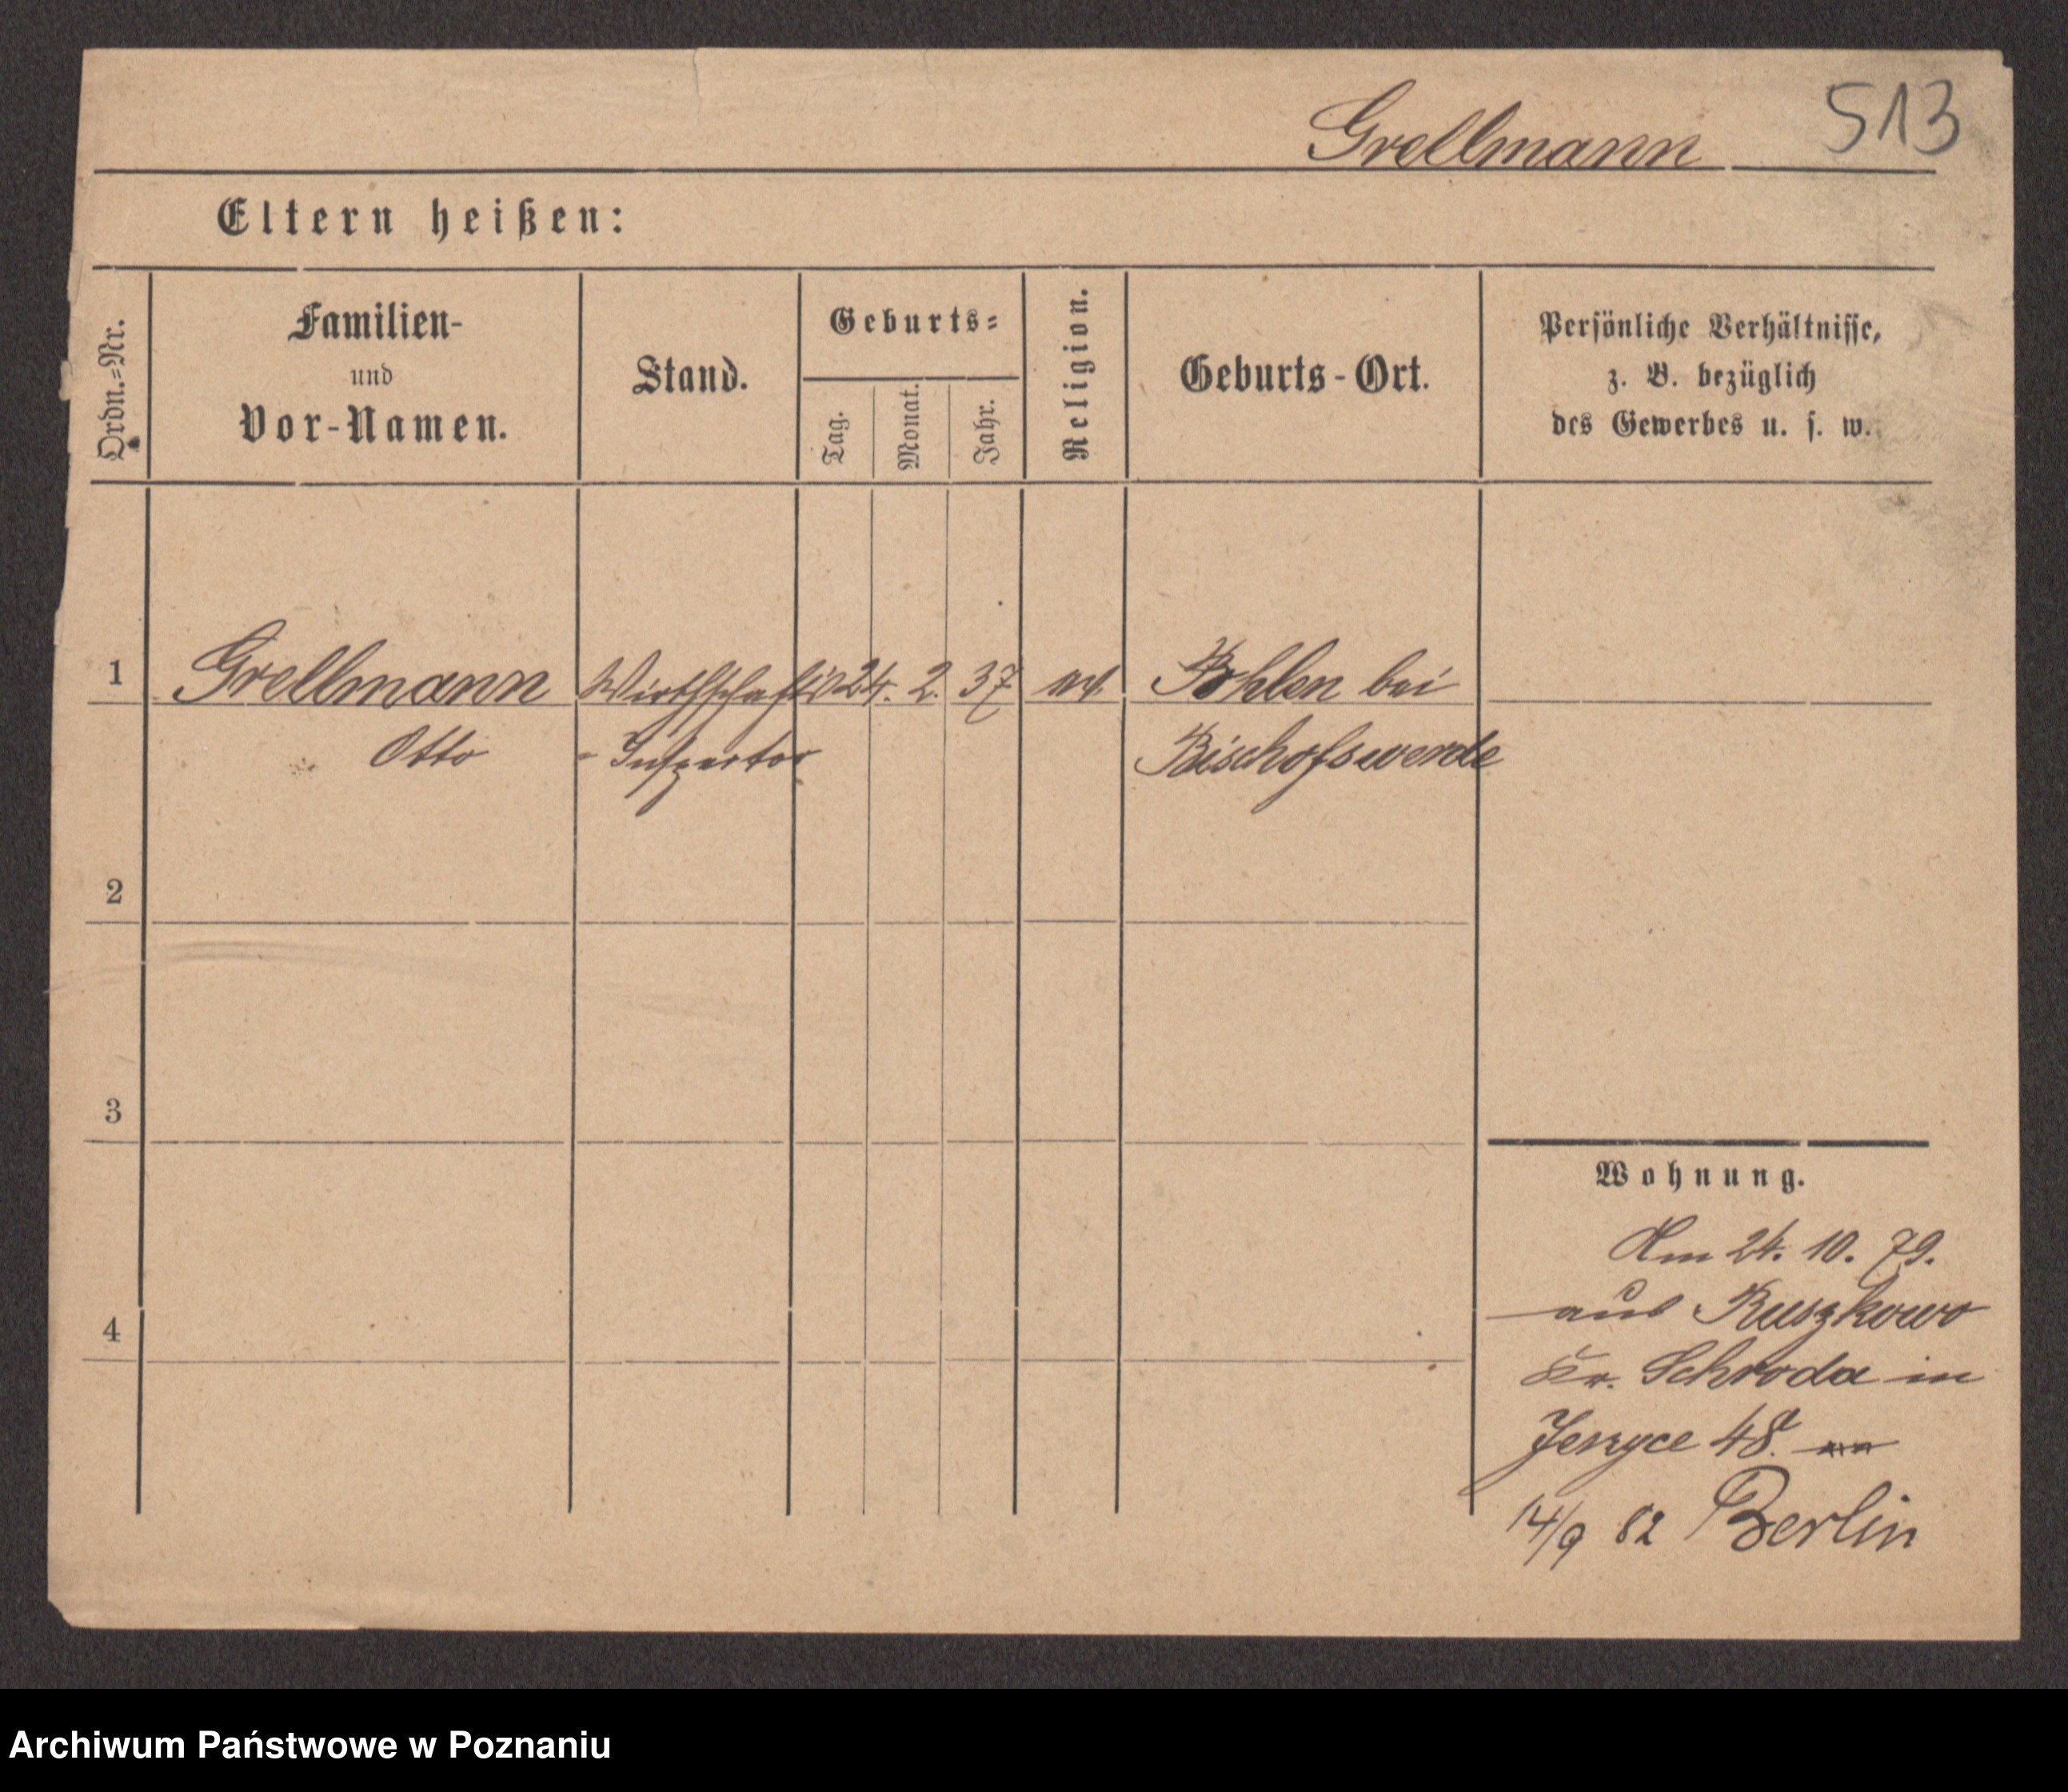 Grellmann 513
Eltern heißen:
Ordn.=Nr.
Familien-
und
Vor-Namen.
Stand.
Geburts=
Tag.
Monat.
Jahr.
Religion.
Geburts-Ort.
Persönliche Verhältnisse,
z. B. bezüglich
des Gewerbes u. s. w.
1 Grellmann Wirthschafts 24. 2. 37 bei
Otto - Inspector Bischofswerde
2
3
4
Wohnung.
Am 24. 10. 79.
aus Ruszkowo
Kr. Schroda in
Jerzyce 48.
14/9 82 Berlin
Archiwum Państwowe w Poznaniu